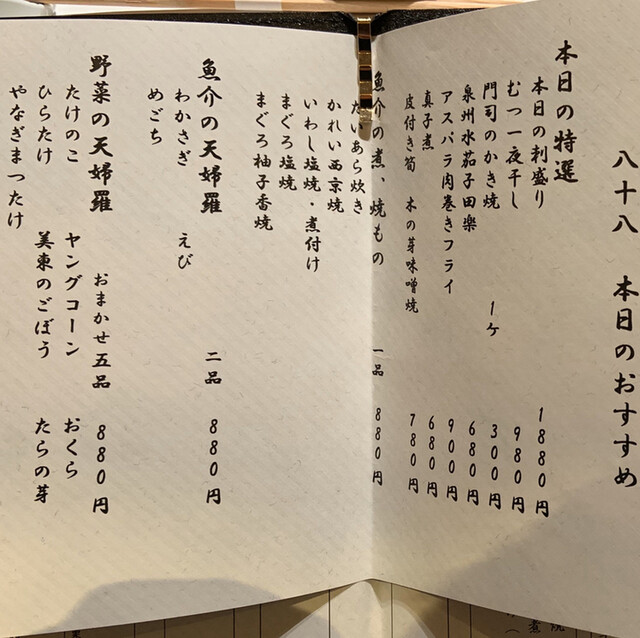 八十八 本日のおすすめ
本日の特選
本日の刺盛り 1880円
むつ一夜干し 980円
門司のかき焼 1ケ 300円
泉州水茄子田楽 680円
アスパラ肉巻きフライ 900円
真子煮 680円
皮付き筍 木の芽味噌焼 780円
魚介の煮、焼もの 一品 880円
たいあら炊き
かれい西京焼
いわし塩焼・煮付け
まぐろ塩焼
まぐろ柚子香焼
魚介の天婦羅 二品 880円
わかさぎ えび
めごち
野菜の天婦羅 おまかせ五品 880円
たけのこ ヤングコーン おくら
ひらたけ 美東のごぼう たらの芽
やなぎまつたけ